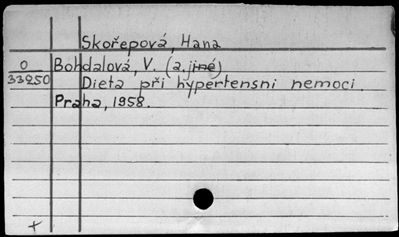 Skořepová, Hana
O Bohdalová, V. (a. jiné)
33250 Dieta při hypertensni nemoci.
Praha, 1958.
+